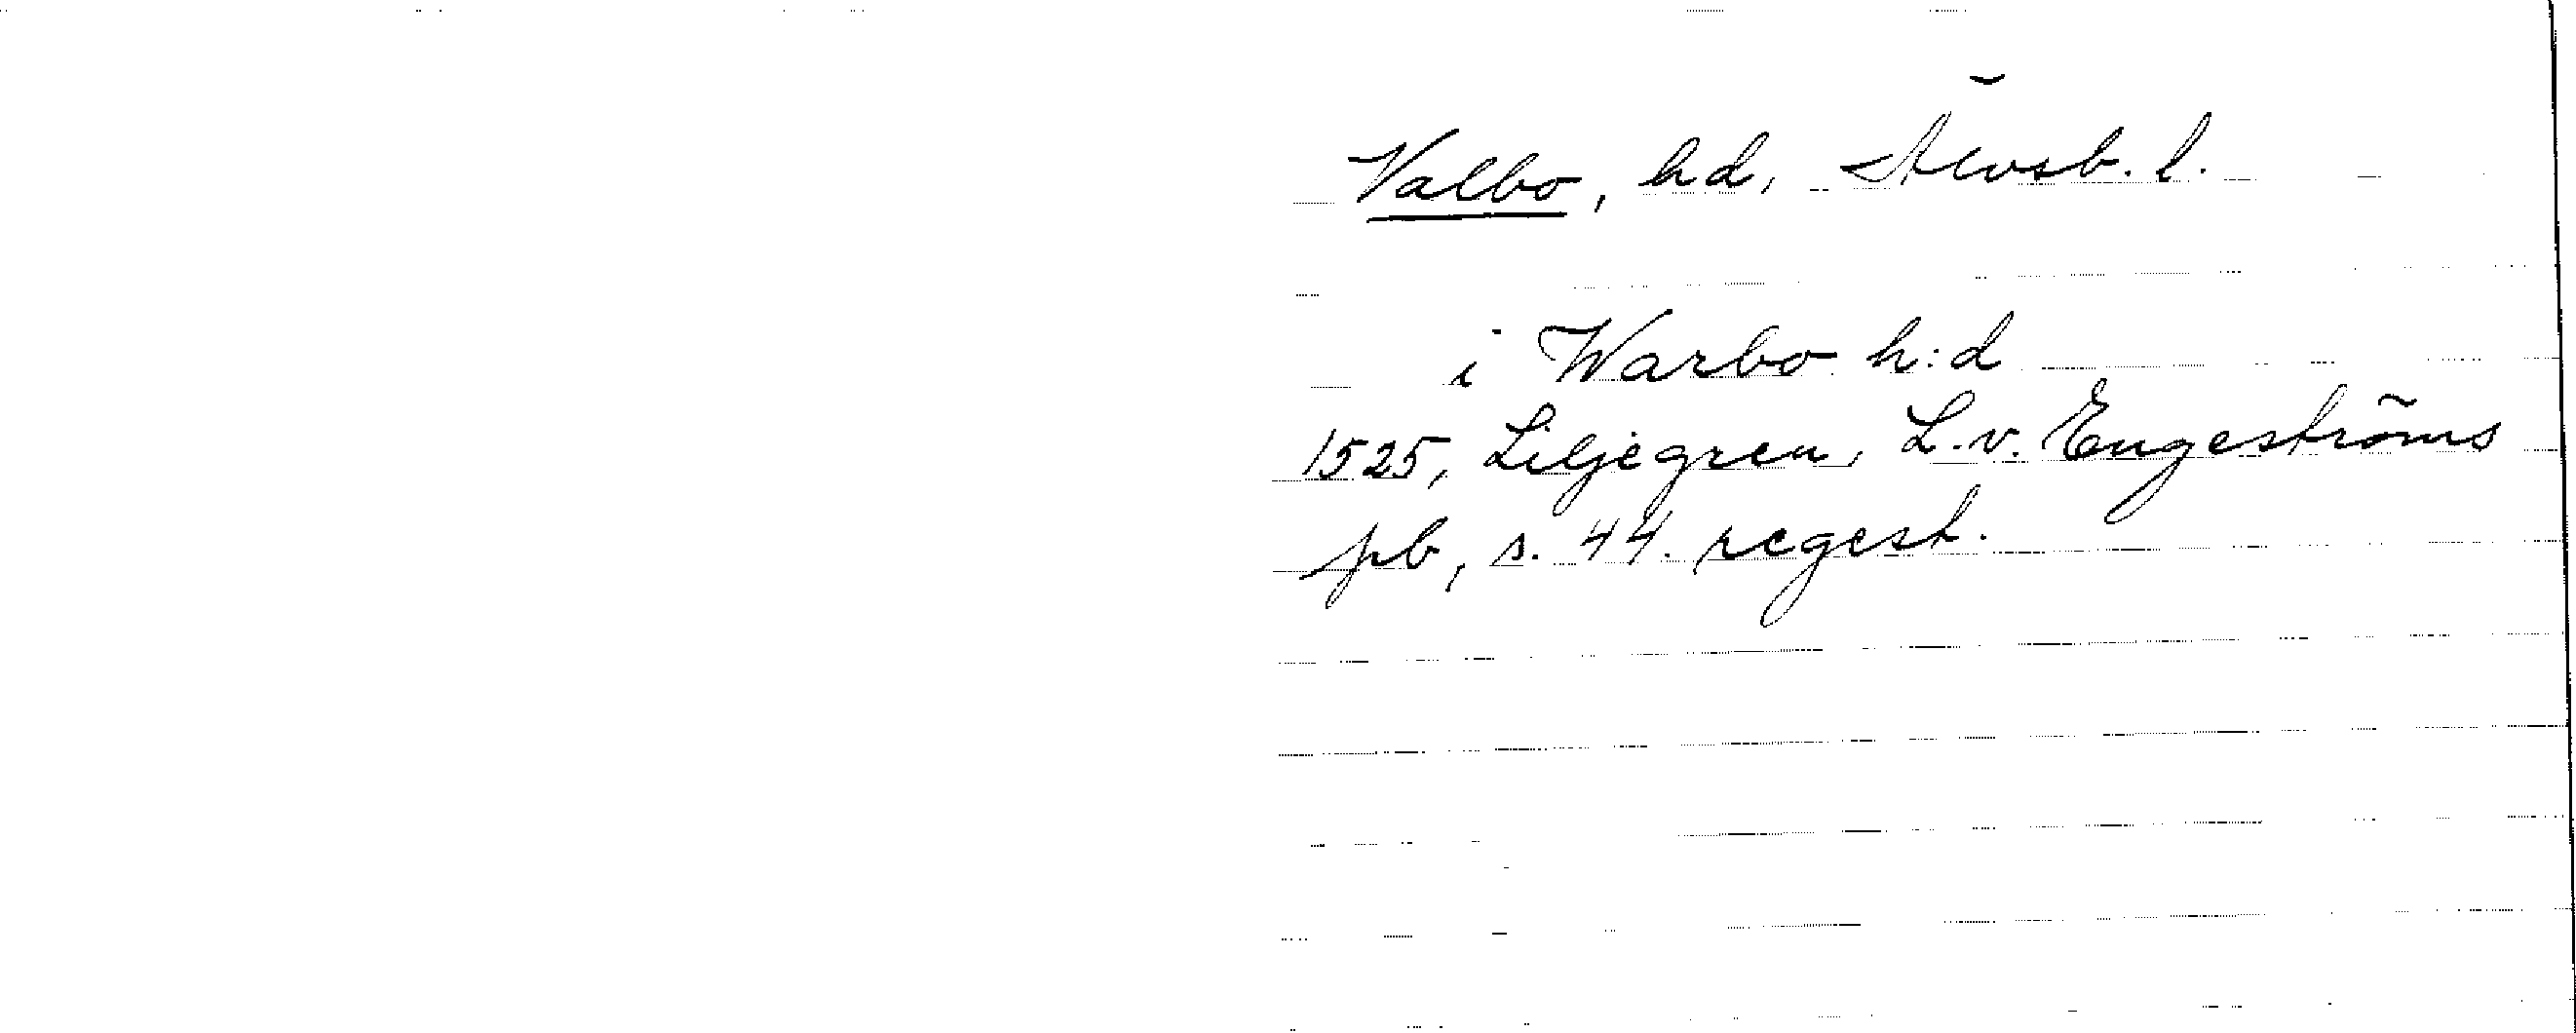 Valbo, hd, Älvsb. l.
i Warbo h:d
1525, Liljegren, L. v. Engeströms
pb, s. 44. regest.